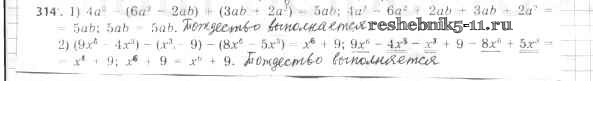 314. 1) 4a² – (6a² – 2ab) + (3ab + 2a²) = 5ab; 4a² – 6a² + 2ab + 3ab + 2a² =
= 5ab; 5ab = 5ab. Тождество выполняется
reshebnik5-11.ru
2) (9x⁶ – 4x³) – (x³ – 9) – (8x⁶ – 5x³) = x⁶ + 9; 9x⁶ – 4x³ – x³ + 9 – 8x⁶ + 5x³ =
= x⁶ + 9; x⁶ + 9 = x⁶ + 9. Тождество выполняется